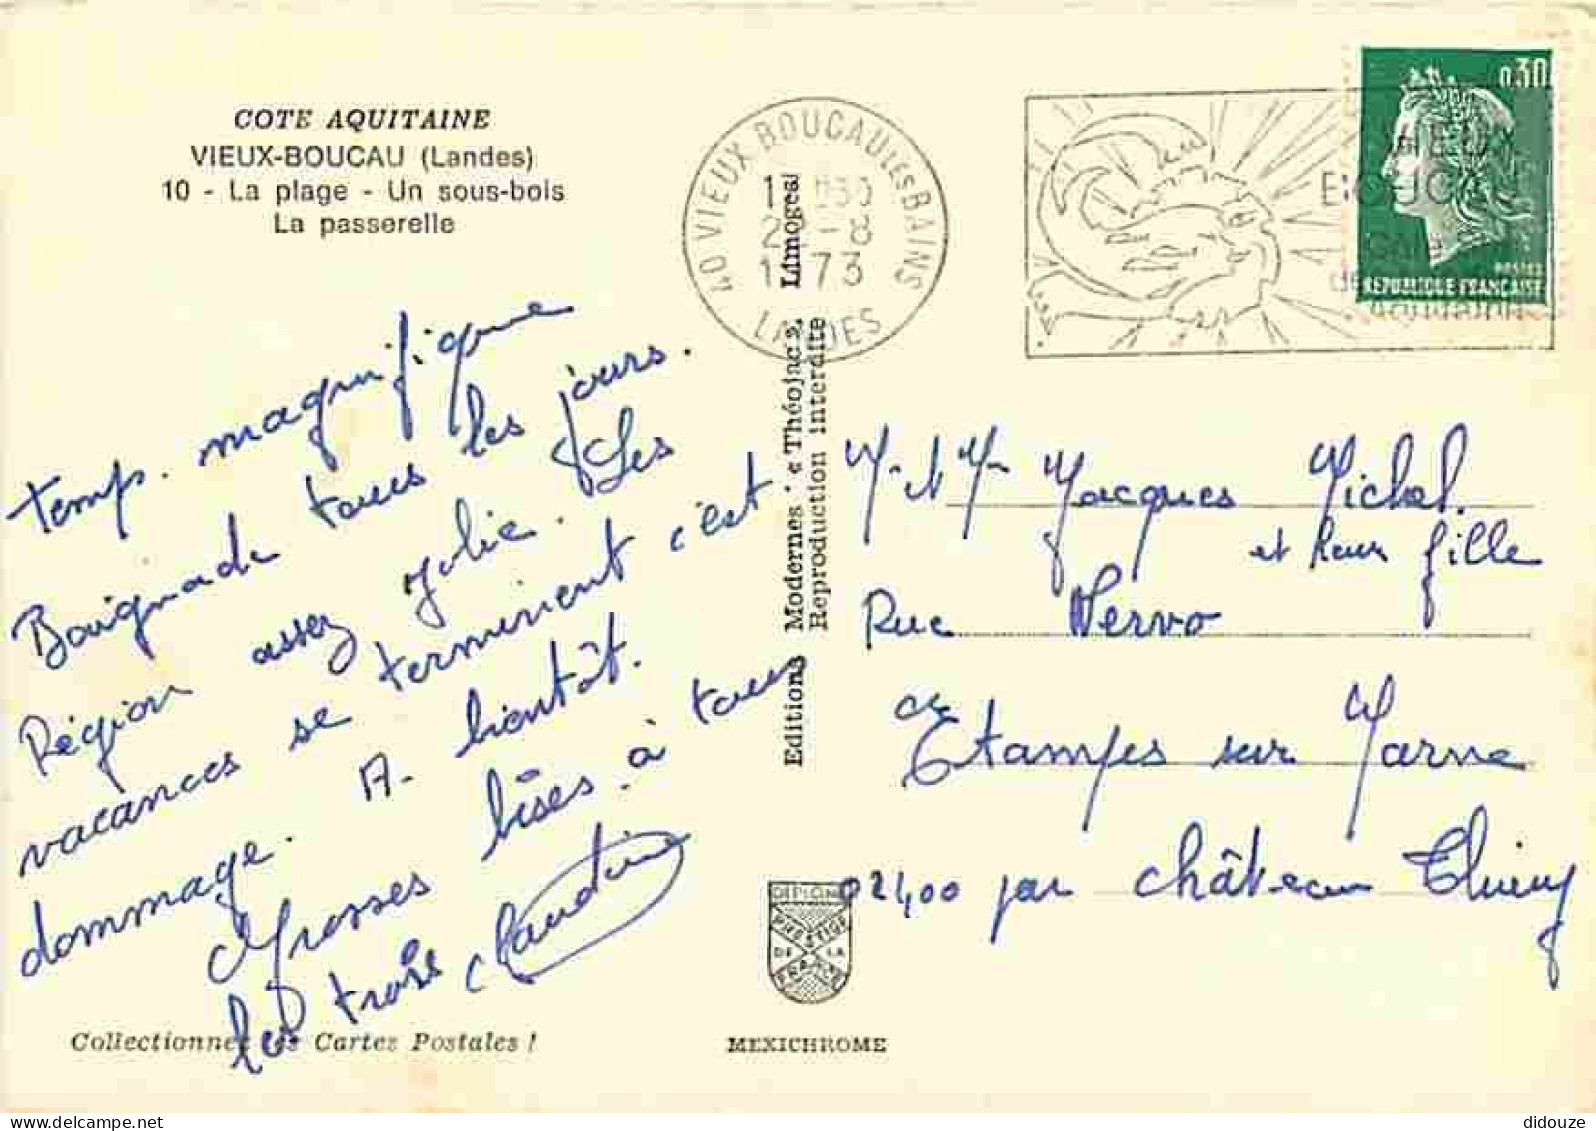 COTE AQUITAINE
VIEUX-BOUCAU (Landes)
10 - La plage - Un sous-bois
La passerelle
40 VIEUX BOUCAU LES BAINS
-8
73
LANDES
VIEUX
BOUCAU
0,30
POSTES
REPUBLIQUE FRANÇAISE
Temps magnifique
Baignade tous les jours.
Région assez jolie. Les
vacances se terminent c'est
dommage. A bientôt.
Grosses bises à tous
les trois Claudine
Editions Modernes "Théojac", Limoges
Reproduction interdite
M. et Mme Jacques Michel
et leur fille
Rue
Etampes sur Marne
02400 par Château Thierry
DIPLOME
PRESTIGE
DE LA
FRANCE
Collectionnez les Cartes Postales !
MEXICHROME
didouze